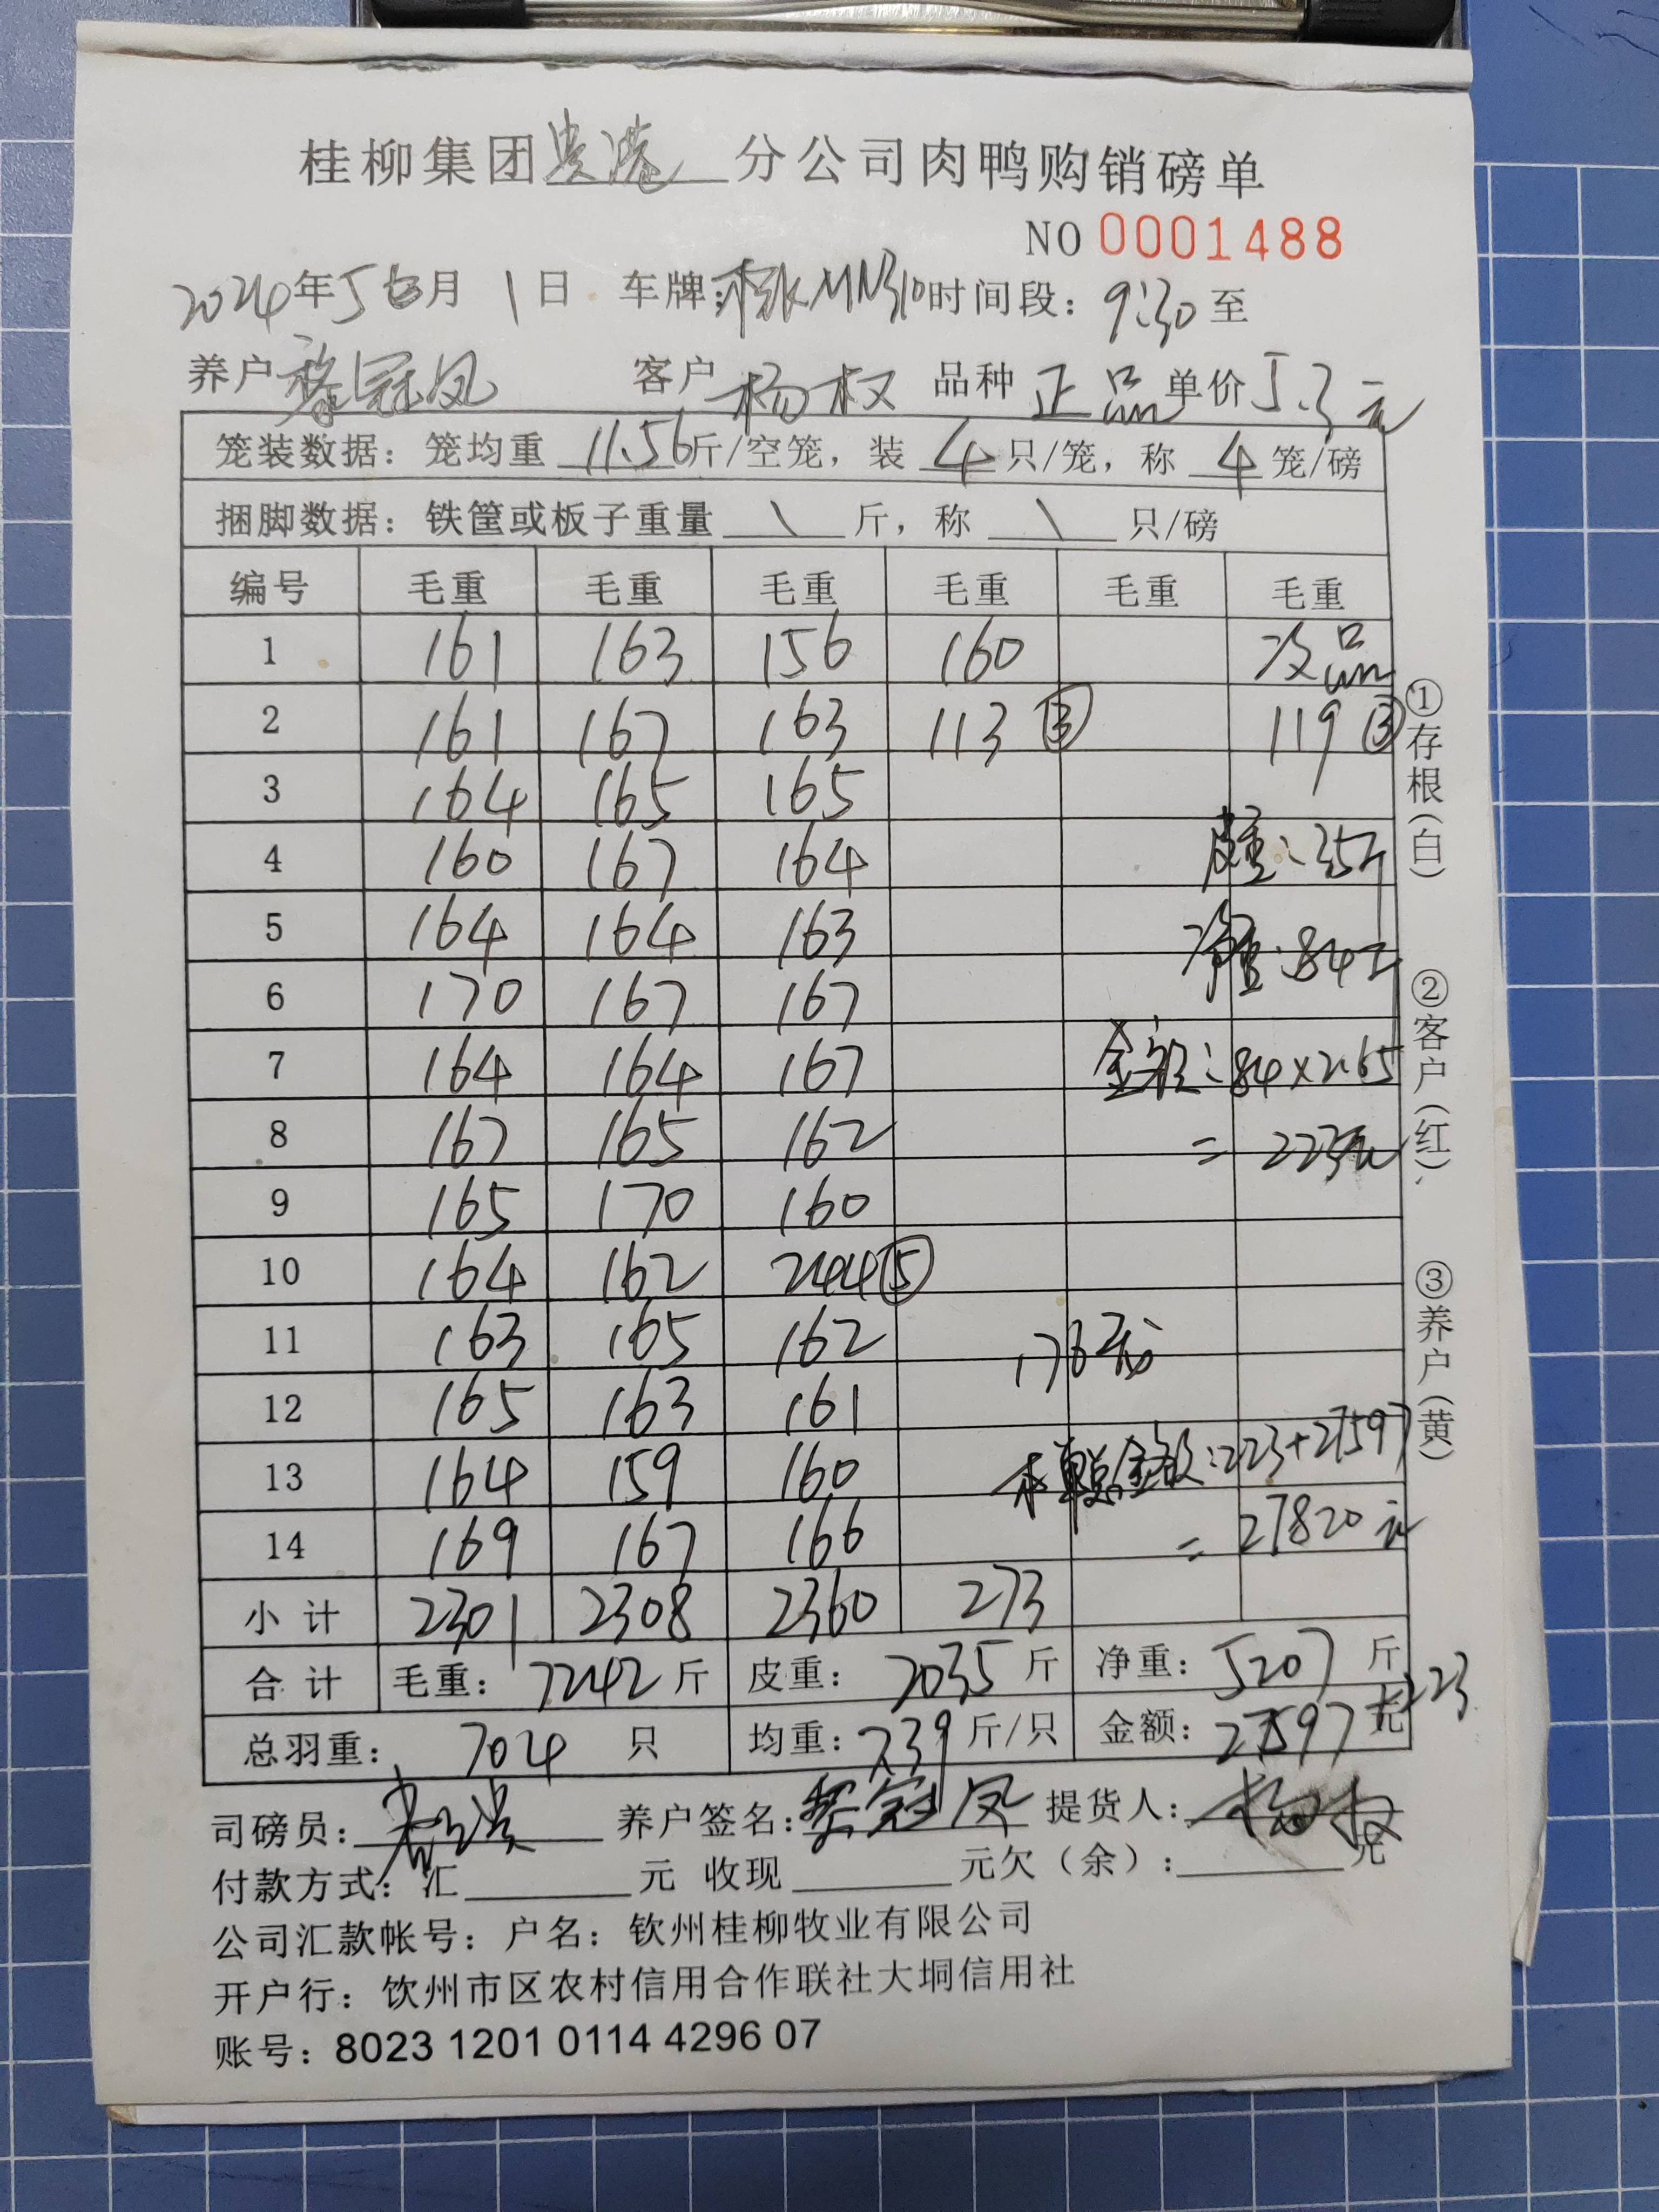 桂柳集团贵港分公司肉鸭购销磅单
NO 0001488
2024年5月1日 车牌: 时间段: 9:30至
养户 黎冠凤 客户 杨权 品种 正品 单价5.3元
笼装数据: 笼均重 11.56斤/空笼, 装 4 只/笼, 称 4 笼/磅
捆脚数据: 铁筐或板子重量 \ 斤, 称 \ 只/磅
编号 毛重 毛重 毛重 毛重 毛重 毛重
1 161 163 156 160 次品
2 161 167 163 113 ③ 119 ③
3 164 165 165
4 160 167 164 皮重:35斤
5 164 164 163 净重:84斤
6 170 167 167
7 164 164 167 金额:84×2.65
8 167 165 162 =223元
9 165 170 160
10 164 162 244⑤
11 163 165 162 176
12 165 163 161
13 164 159 160 本单总金额:223+27597
14 169 167 166 =27820元
小计 2301 2308 2360 273
合计 毛重: 7242斤 皮重: 2035斤 净重: 5207斤
+223
总羽重: 704 只 均重: 7.39斤/只 金额: 27597元
司磅员: 养户签名: 黎冠凤 提货人: 杨权
付款方式: 汇 元 收现 元欠(余): 元
公司汇款帐号: 户名: 钦州桂柳牧业有限公司
开户行: 钦州市区农村信用合作联社大垌信用社
账号: 8023 1201 0114 4296 07
①存根(白)
②客户(红)
③养户(黄)